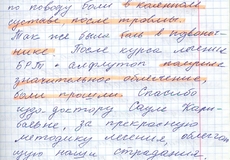 по поводу боли в коленном
суставе, после травмы.
Так же была боль в позвоноч-
нике. После курса лечения
БРТ + алфлутоп получила
значительное облегчение,
боли прошли. Спасибо
доктору Сауле
за прекрасную
методику лечения, облегча-
наши страдания